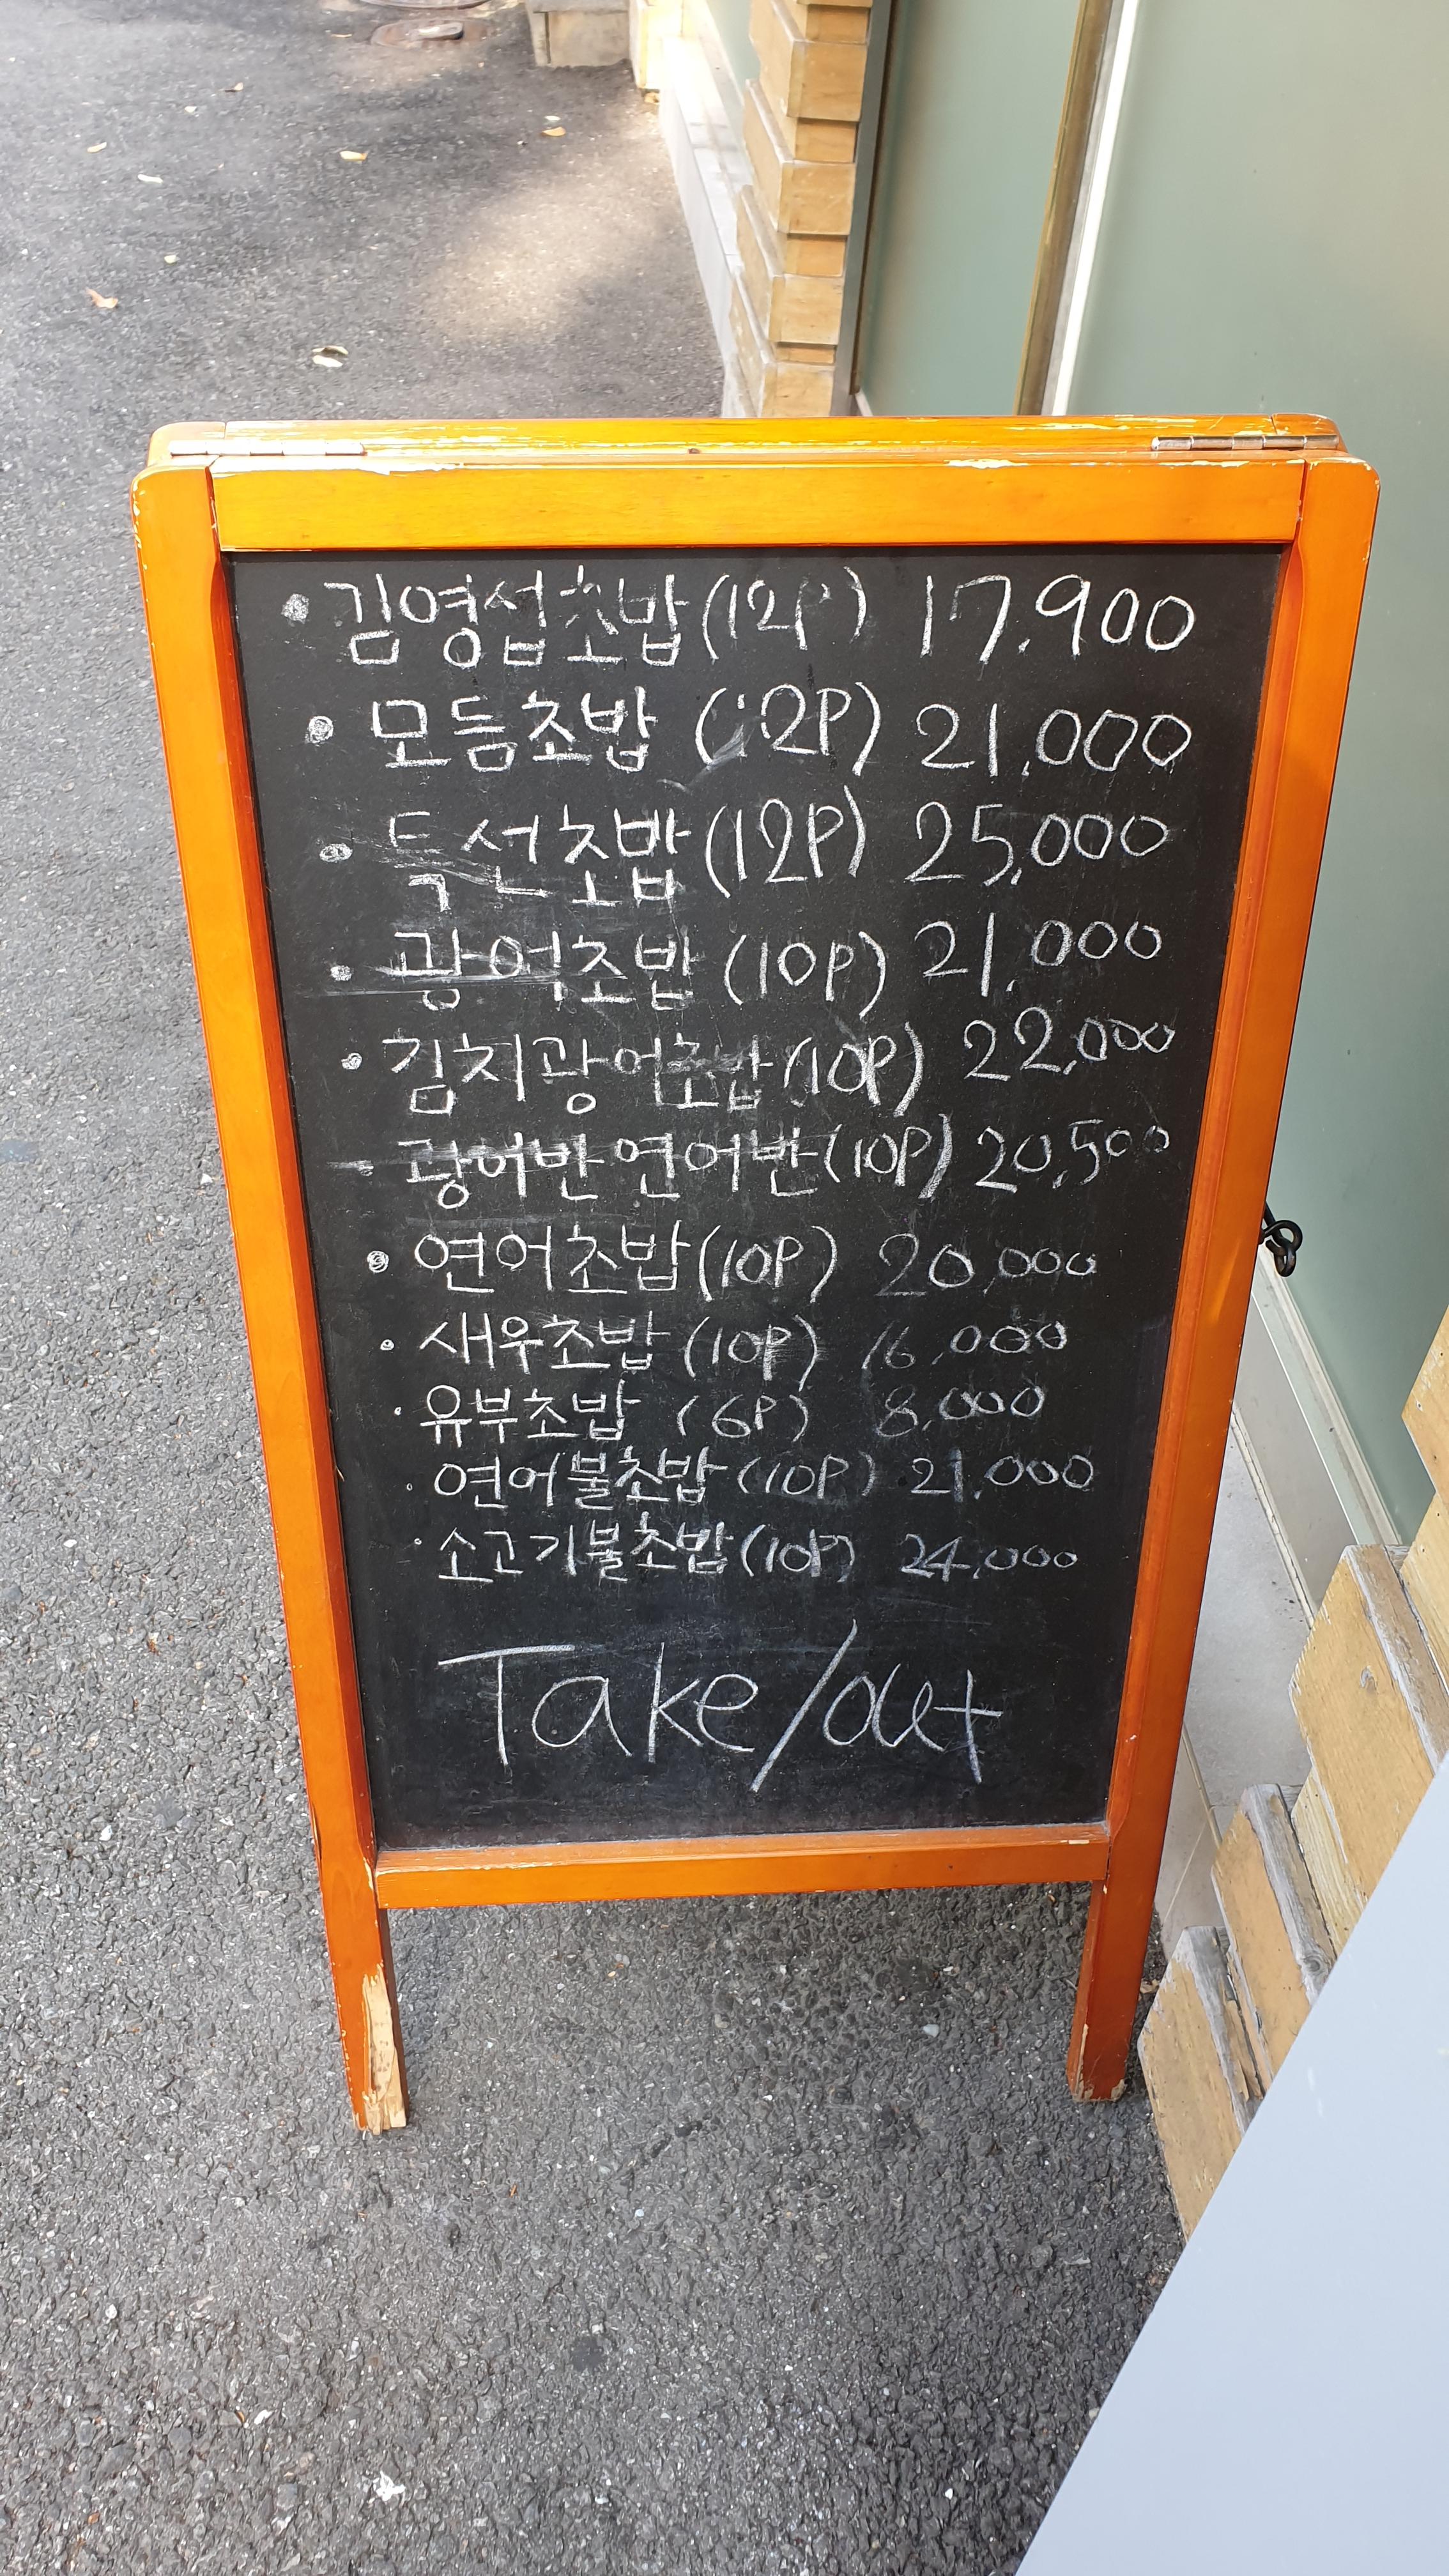 • 김영섭초밥(12P) 17,900
• 모듬초밥 (12P) 21,000
• 특선초밥(12P) 25,000
• 광어초밥(10P) 21,000
• 김치광어초밥(10P) 22,000
• 광어반연어반(10P) 20,500
• 연어초밥(10P) 20,000
• 새우초밥(10P) 16,000
• 유부초밥 (6P) 8,000
• 연어불초밥(10P) 21,000
• 소고기불초밥(10P) 24,000
Take/out